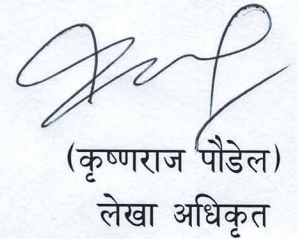 (कृष्णराज पौडेल)
लेखा अधिकृत